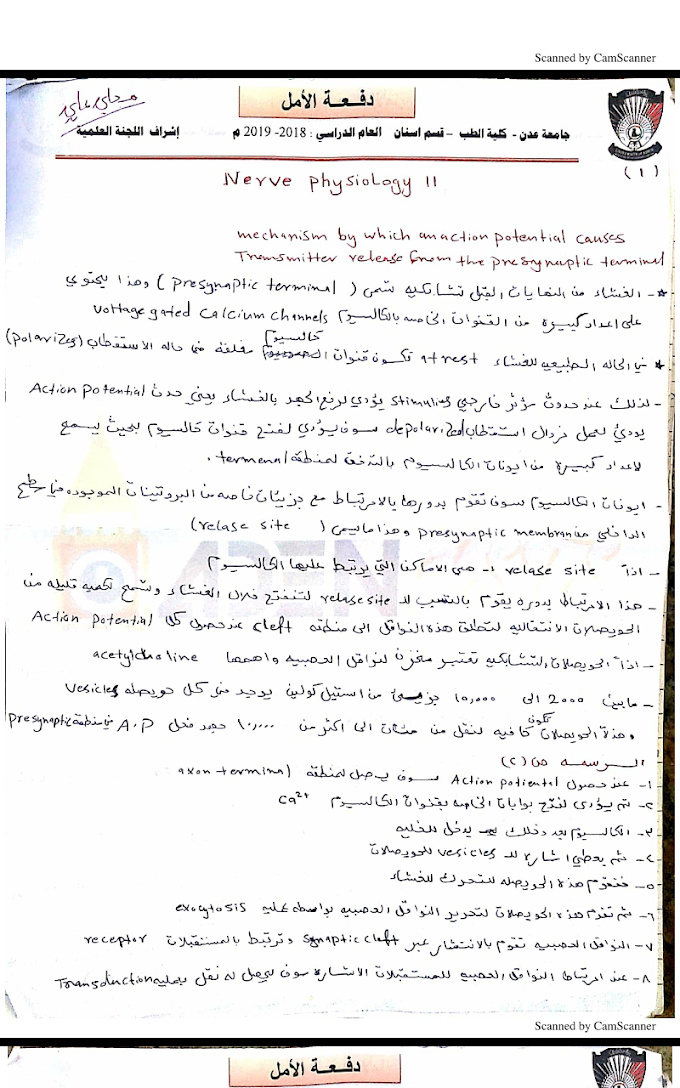 Scanned by CamScanner
دفعة الأمل
جامعة عدن - كلية الطب - قسم اسنان العام الدراسي : 2018- 2019 م إشراف اللجنة العلمية
(1)
Nerve physiology II
mechanism by which an action potential causes
Transmitter release from the presynaptic terminal
*- الغشاء من النهايات القبل تشابكيه تسمى ( presynaptic terminal ) وهذا يحتوي
على اعداد كبيرة من القنوات الخاصه بالكالسيوم voltage gated calcium channels
* في الحاله الطبيعيه للغشاء at rest تكون قنوات كالسيوم مغلقة في حاله الاستقطاب (polarizes)
- لذلك عند حدوث مؤثر خارجي stimulies يؤدي لرفع الجهد بالغشاء يعني حدث Action Potential
يودي لعمل زوال استقطاب depolarized سوف يؤدي لفتح قنوات كالسيوم بحيث يسمع
لاعداد كبيرة من ايونات الكالسيوم بالتدفق لمنطقة termenal .
- ايونات الكالسيوم سوف تقوم بدورها بالارتباط مع جزيئات خاصه من البروتينات الموجوده في سطح
الداخلي من presynaptic membran وهذا ما يسمى ( relase site )
- اذاً relase site :- هي الاماكن التي يرتبط عليها الكالسيوم
- هذا الارتباط بدوره يقوم بالنسب للـ relase site لتنفتح خلال الغشاء وتسمح لكميه قليله من
الحويصلات الانتقاليه لتطلق هذه النواقل الى منطقه cleft عند حصول كل Action Potential
- اذاً الحويصلات التشابكيه تعتبر مخزن لنواقل العصبيه واهمها acetylcholine
- مابين 2000 الى 10,000 جزيئ من استيل كولين يوجد في كل حويصله vesicles
وهذة الحويصلات تكون كافيه لنقل من مئات الى اكثر من 10,000 جهد فعل A.P في منطقة presynaptic
الرسمه من (C)
1- عند حصول Action potiental سوف يصل لمنطقة axon terminal
2- ثم يؤدي لفتح بوابات الخاصه بقنوات الكالسيوم Ca2+
3- الكالسيوم بعد ذلك يدخل للخليه
4- ثم يعطي اشارة للـ vesicles للحويصلات
5- فتقوم هذة الحويصله للتحرك للغشاء
6- ثم تقوم هذة الحويصلات لتحرير النواقل العصبيه بواسطه عمليه exocytosis
7- النواقل العصبيه تقوم بالانتشار عبر synaptic cleft وترتبط بالمستقبلات receptor
8- عند ارتباط النواقل العصبيه للمستقبلات الاشارة سوف يحصل له نقل بعمليه Transduction
Scanned by CamScanner
دفعة الأمل